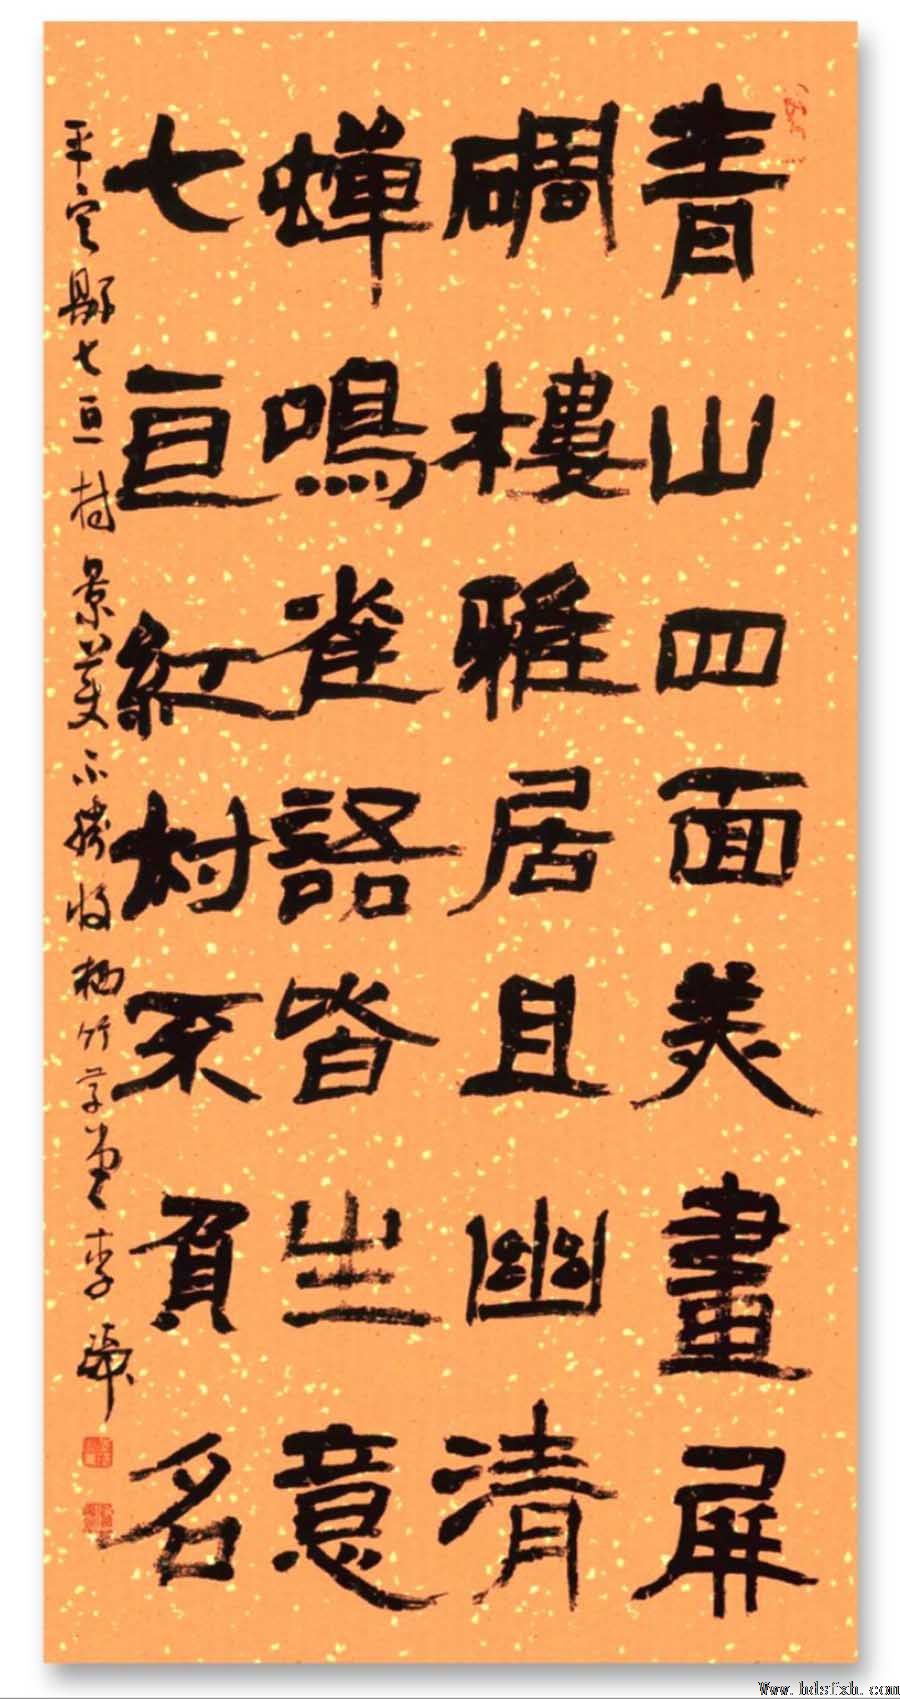 青山四面美畫屏
碉樓雅居且幽清
蟬鳴雀語皆生意
七亘紅村不負名
平定縣七亘村景美不勝收栖竹草堂李
Www.hdsfxh.com